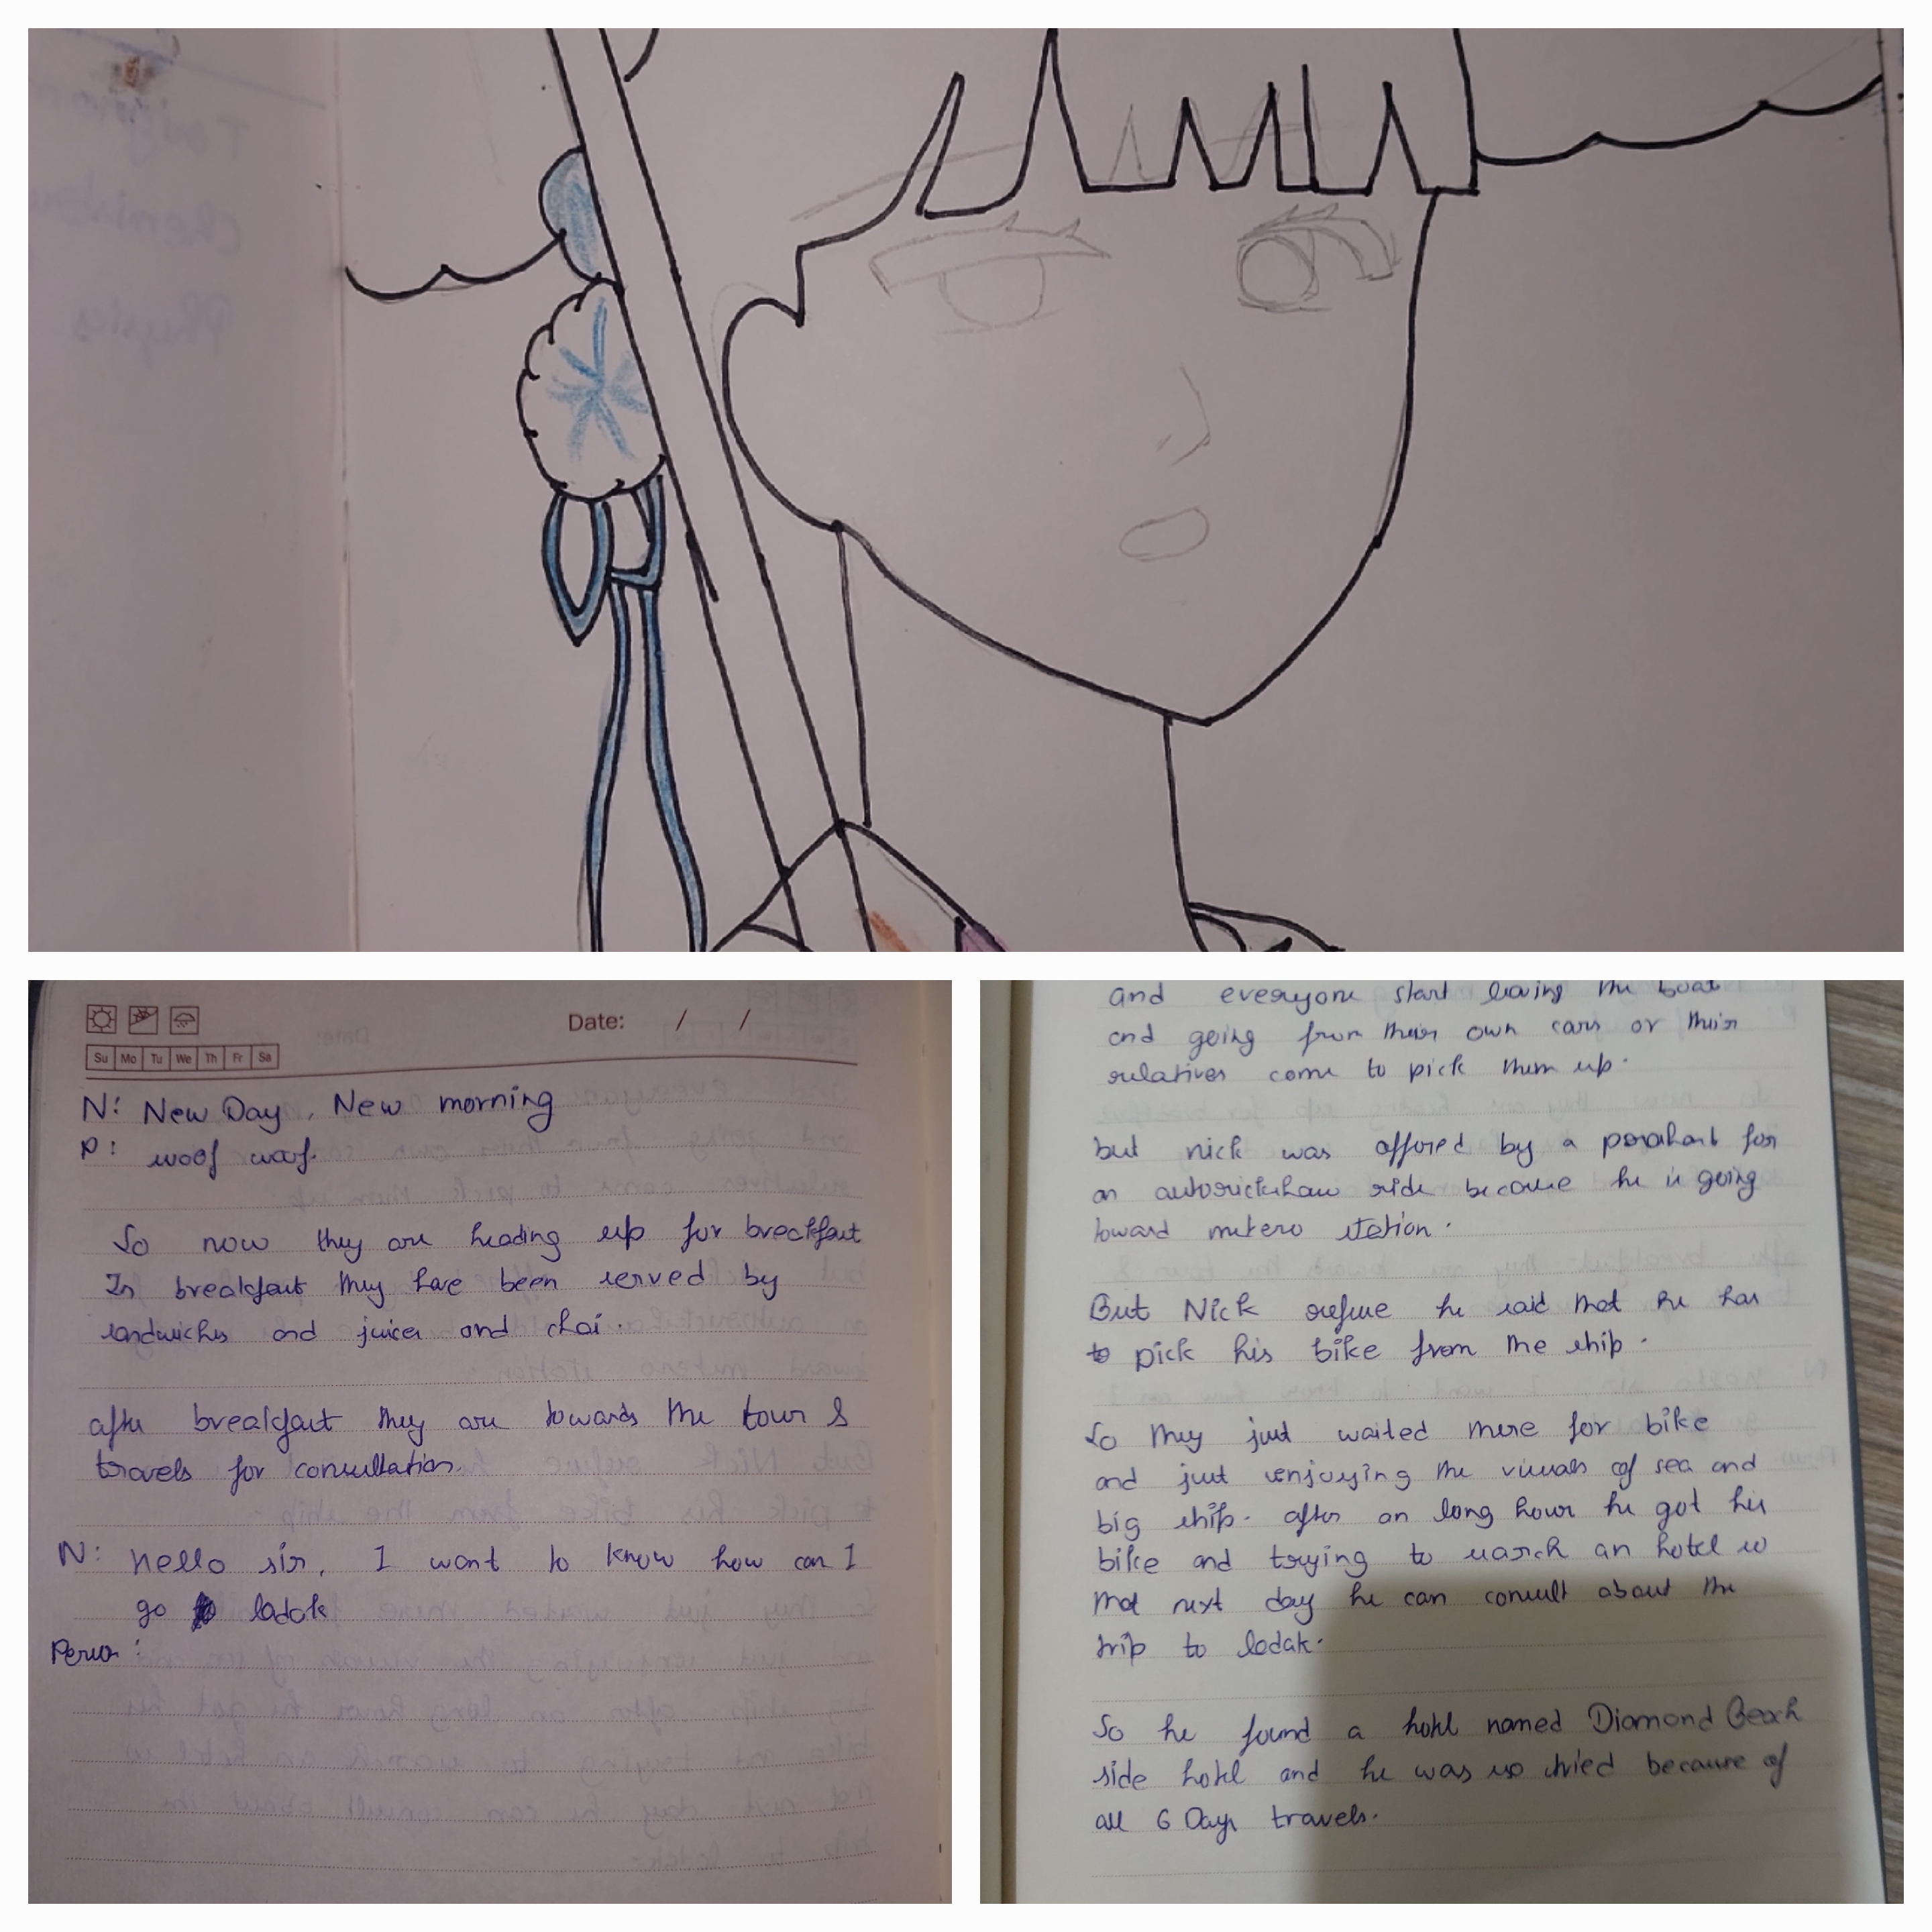 Date: / /
Su Mo Tu We Th Fr Sa
N: New Day, New morning
P: woof woof.
So now they are heading up for breakfast
In breakfast they have been served by
sandwiches and juices and chai.
after breakfast they are towards the tour &
travels for consultation.
N: Hello sir, I want to know how can I
go ladak
Person:
and everyone start leaving the boat
and going from their own cars or their
relatives come to pick them up.
but nick was offored by a for
an autorickshaw ride because he is going
toward metero station.
But Nick refuse he said that he has
to pick his bike from the ship.
So they just waited there for bike
and just enjoying the visuals of sea and
big ship. after an long hour he got his
bike and trying to search an hotel so
that next day he can consult about the
trip to ladak.
So he found a hotel named Diamond Beach
side hotel and he was so tried because of
all 6 Days travels.